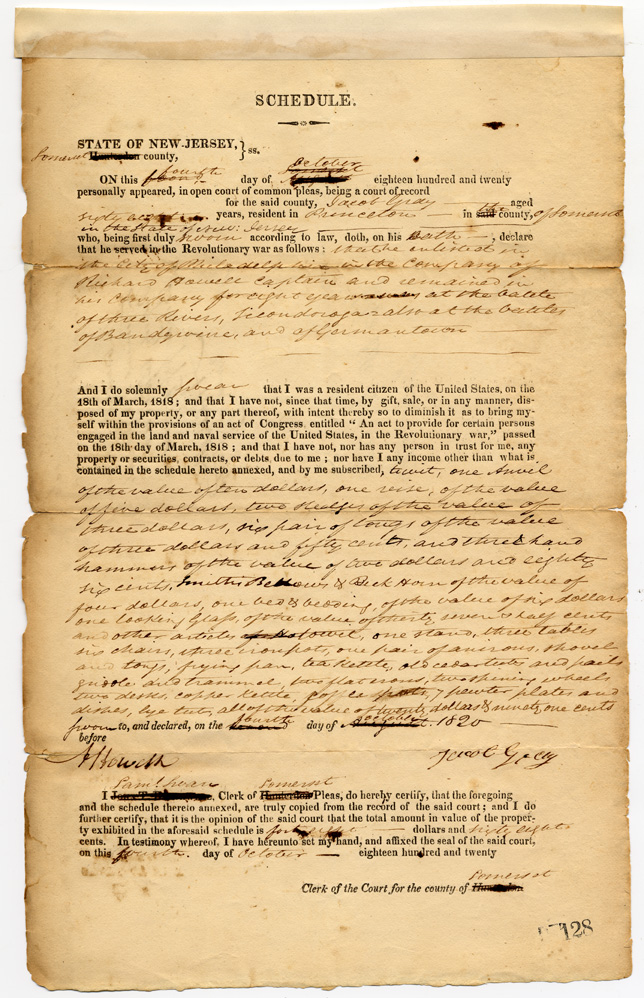 SCHEDULE.
STATE OF NEW-JERSEY, } ss.
Somerset Hunterdon county,
October
ON this fourth day of eighteen hundred and twenty
personally appeared, in open court of common pleas, being a court of record
for the said county, Jacob Gray aged
sixty years, resident in Princeton in the said county, of Somerset
in the State of New Jersey
who, being first duly sworn according to law, doth, on his Oath, declare
that he served in the Revolutionary war as follows: that he enlisted in
the City of Philadelphia in the Company of
Richard Howell Captain and remained in
his Company for eight years at the battle
of three Rivers, Ticonderoga also at the battles
of Brandywine, and of Germantown
And I do solemnly swear that I was a resident citizen of the United States, on the
18th of March, 1818; and that I have not, since that time, by gift, sale, or in any manner, dis-
posed of my property, or any part thereof, with intent thereby so to diminish it as to bring my-
self within the provisions of an act of Congress, entitled "An act to provide for certain persons
engaged in the land and naval service of the United States, in the Revolutionary war," passed
on the 18th day of March, 1818; and that I have not, nor has any person in trust for me, any
property or securities, contracts, or debts due to me; nor have I any income other than what is
contained in the schedule hereto annexed, and by me subscribed, towit, one Anvil
of the value of ten dollars, one vise, of the value
of five dollars, two Sledges of the value of
three dollars, six pair of tongs of the value
of three dollars and fifty cents, and three hand
hammers of the value of two dollars and eighty
six cents, Smiths Bellows & Beck Horn of the value of
four dollars, one bed & bedding, of the value of six dollars
one looking Glass, of the value of thirty seven & half cents
and other articles as follows, one stand, three tables
six chairs, three iron pots, one pair of anirons, shovel
and tongs, frying pan, tea kettle, old cedar tubs and pails
gridle and trammel, two flat irons, two spinning wheels
two desks, copper kettle, coffee pots, 7 pewter plates and
dishes, lye tub, all of the value of twenty dollars & ninety one cents
sworn to, and declared, on the fourth day of October 1820
before
A Howell Jacob Gray
Saml Swan Somerset
I Clerk of Hunterdon Pleas, do hereby certify, that the foregoing
and the schedule thereto annexed, are truly copied from the record of the said court; and I do
further certify, that it is the opinion of the said court that the total amount in value of the proper-
ty exhibited in the aforesaid schedule is dollars and sixty eight
cents. In testimony whereof, I have hereunto set my hand, and affixed the seal of the said court,
on this fourth day of October eighteen hundred and twenty
Somerset
Clerk of the Court for the county of Hunterdon
128